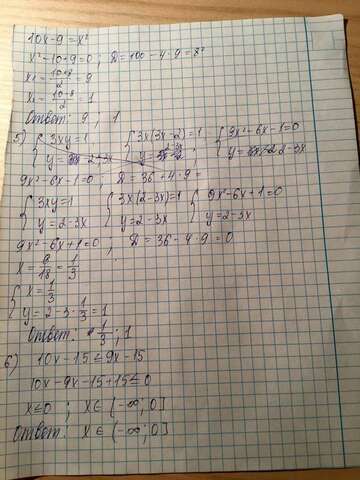 10x-9=x²
x²-10+9=0; D=100-4·9=8²
x₁=(10+8)/2=9
x₂=(10-8)/2=1
Ответ: 9; 1
5) { 3xy=1 { 3x(3x-2)=1 { 3x²-6x-1=0
y= 2-3x
9x²-6x-1=0; D=36+4·9=
{ 3xy=1 { 3x(2-3x)=1 { 9x²-6x+1=0
y=2-3x y=2-3x y=2-3x
9x²-6x+1=0; D=36-4·9=0
x=6/18=1/3
{ x=1/3
y=2-3·1/3=1
Ответ: 1/3; 1
6) 10x-15≤9x-15
10x-9x-15+15≤0
x≤0; x∈(-∞;0]
Ответ: x∈(-∞;0]